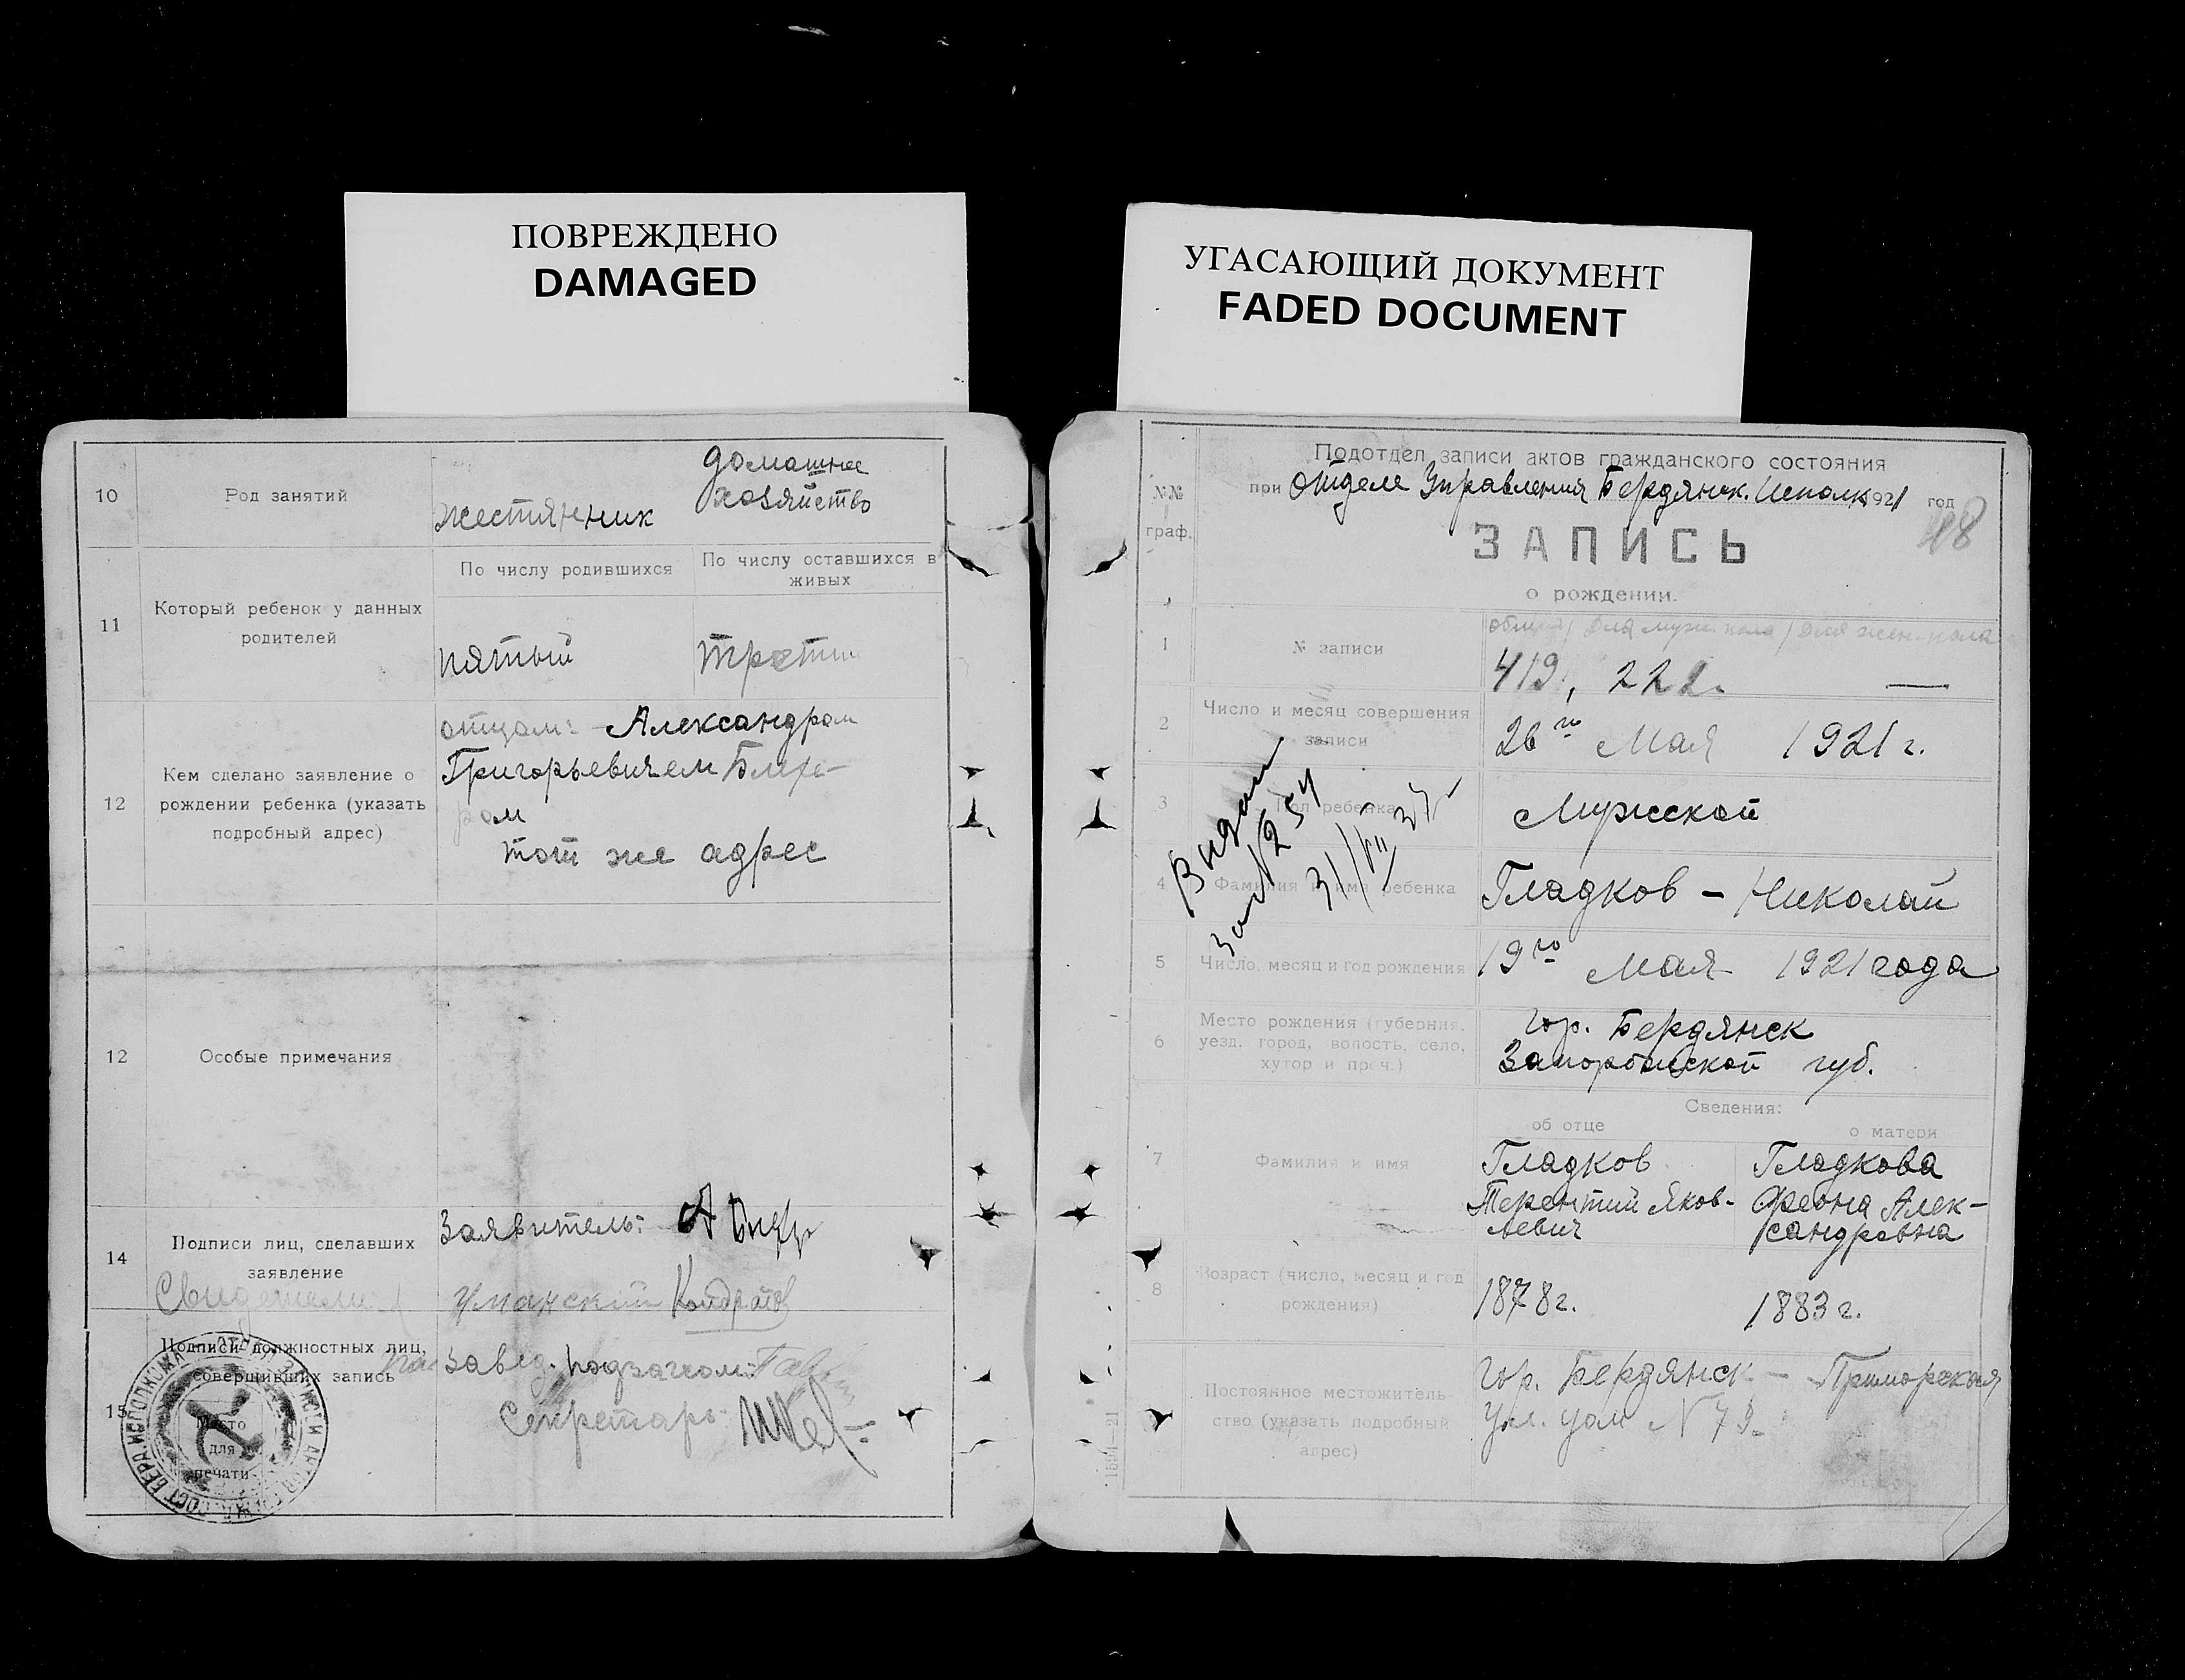 ПОВРЕЖДЕНО
DAMAGED
10
Род занятий
жестянник
домашнее
хозяйство
11
Который ребенок у данных
родителей
По числу родившихся
По числу оставшихся в
живых
пятый
трети
12
Кем сделано заявление о
рождении ребенка (указать
подробный адрес)
отцом: - Александром
Григорьевичем
ром
тот же адрес
12
Особые примечания
14
Подписи лиц, сделавших
заявление
Свидетели
Заявитель: А
Уманский Кондратов
15
Подписи должностных лиц,
совершивших запись
Место
для
печати
Завед. подзагсом:
Секретарь:
УГАСАЮЩИЙ ДОКУМЕНТ
FADED DOCUMENT
№№
граф.
Подотдел записи актов гражданского состояния
при Отделе Управления Бердянск. Исполк 1921 год
48
ЗАПИСЬ
о рождении.
1
№ записи
общий / для муж. пола / для жен. пола
419, 222. —
2
Число и месяц совершения
записи
26го Мая 1921 г.
3
Пол ребенка
Мужской
4
Фамилия и имя ребенка
Гладков - Николай
Выдан
31/VII 37
5
Число, месяц и год рождения
19го Мая 1921 года
6
Место рождения (губерния,
уезд, город, волость, село,
хутор и проч.)
гор. Бердянск
Запорожской губ.
Сведения:
об отце
о матери
7
Фамилия и имя
Гладков
Терентий Яков-
левич
Гладкова
Алек-
сандровна
8
Возраст (число, месяц и год
рождения)
1878 г.
1883 г.
Постоянное местожитель-
ство (указать подробный
адрес)
гор. Бердянск - Приморская
ул. дом № 79.